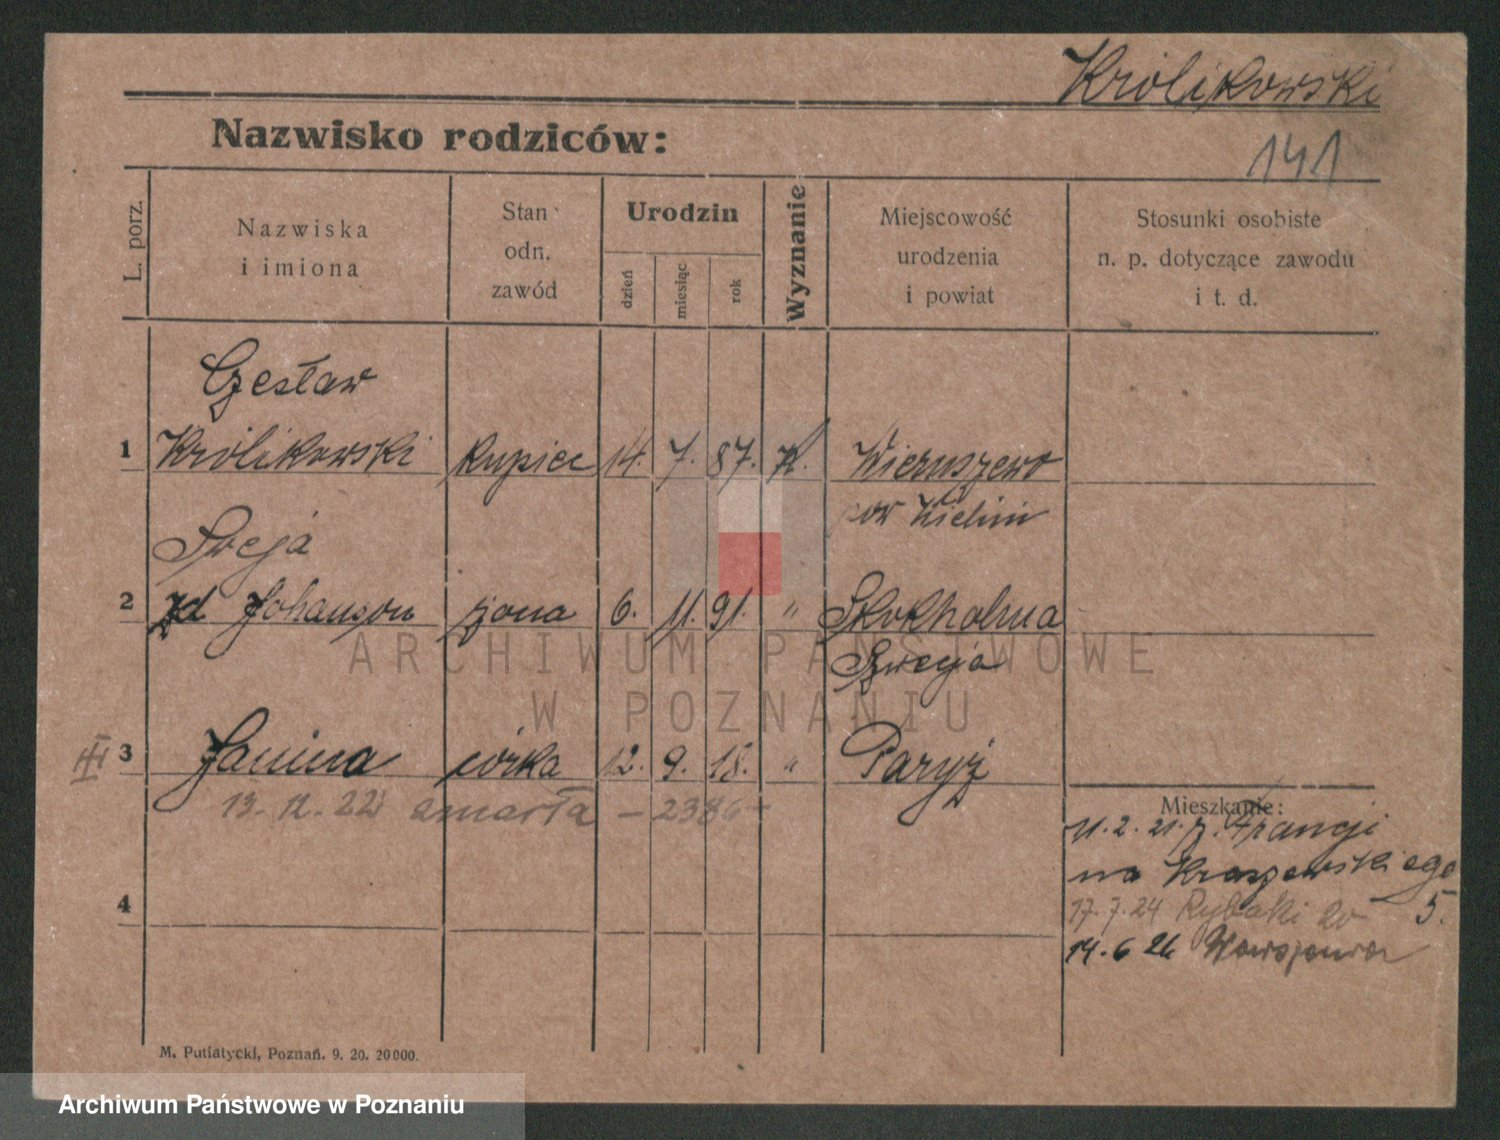 Królikowski
Nazwisko rodziców:
141
L. porz.
Nazwiska
i imiona
Stan
odn.
zawód
Urodzin
dzień
miesiąc
rok
Wyznanie
Miejscowość
urodzenia
i powiat
Stosunki osobiste
n. p. dotyczące zawodu
i t. d.
Czesław
1 Królikowski kupiec 14. 7. 87. K. Wieruszewo
pow
2 Johanson żona 6. 11. 91. " Stokholma
Szwecja
III 3 Janina córka 12. 9. 18. " Paryż
13.12.22 zmarła - 2386
Mieszkanie:
11.2.21. z Francji
na Kraszewskiego
17.7.24 Rybaki 20 5.
14.6 26 Warszawa
4
M. Putiatycki, Poznań. 9. 20. 20000.
ARCHIWUM PAŃSTWOWE
W POZNANIU
Archiwum Państwowe w Poznaniu